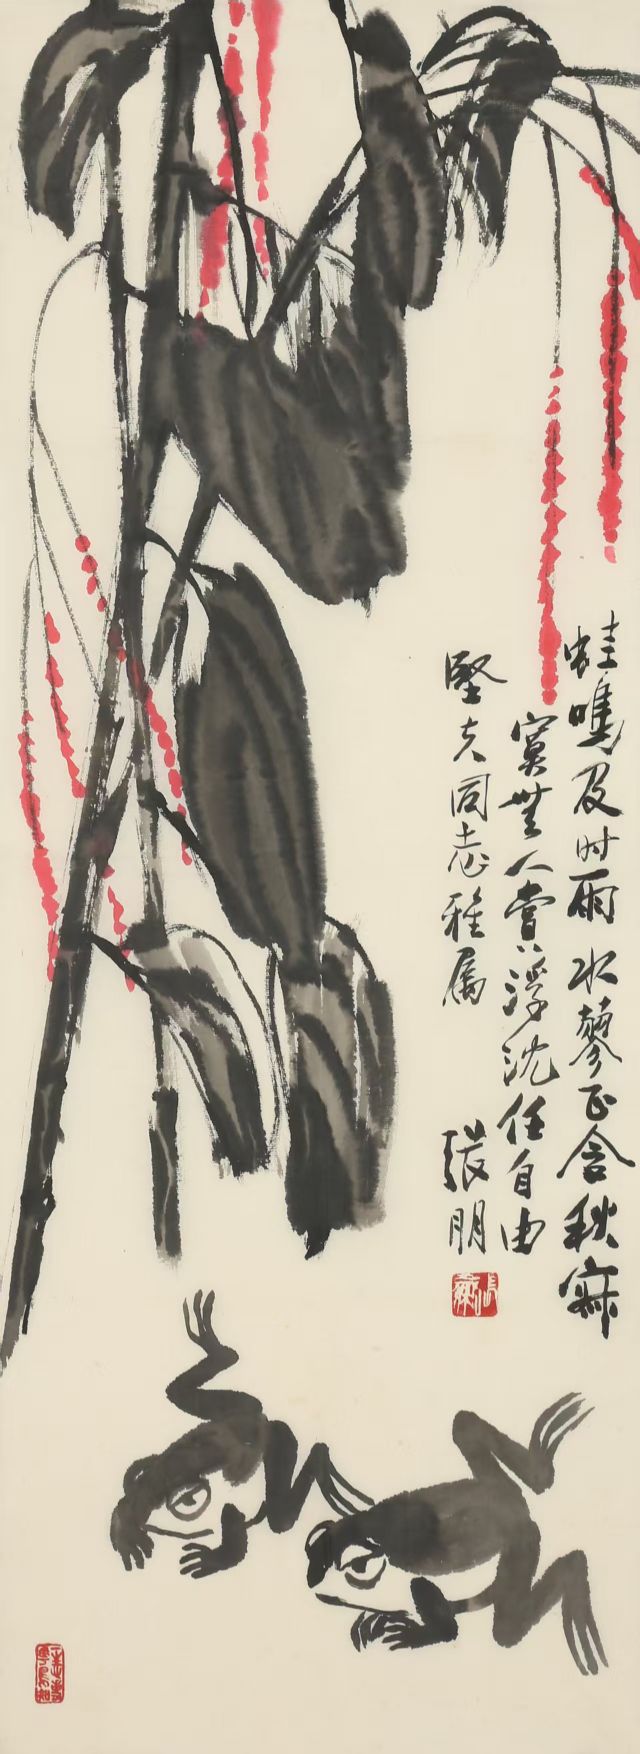 蛙鳴及时雨水蓼正含秋寂
寞無人嘗浮沈任自由
堅夫同志雅属
張朋